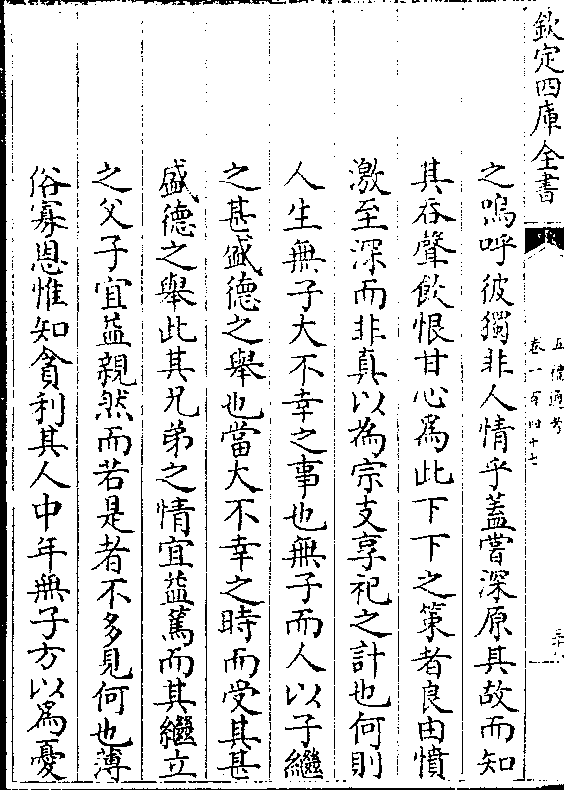 欽定四庫全書
五禮通考
卷一百四十七
之嗚呼彼獨非人情乎蓋嘗深原其故而知
其吞聲飲恨甘心爲此下下之策者良由憤
激至深而非真以為宗支享祀之計也何則
人生無子大不幸之事也無子而人以子繼
之甚盛德之舉也當大不幸之時而受其甚
盛德之舉此其兄弟之情宜益篤而其繼立
之父子宜益親然而若是者不多見何也薄
俗寡恩惟知貪利其人中年無子方以爲憂